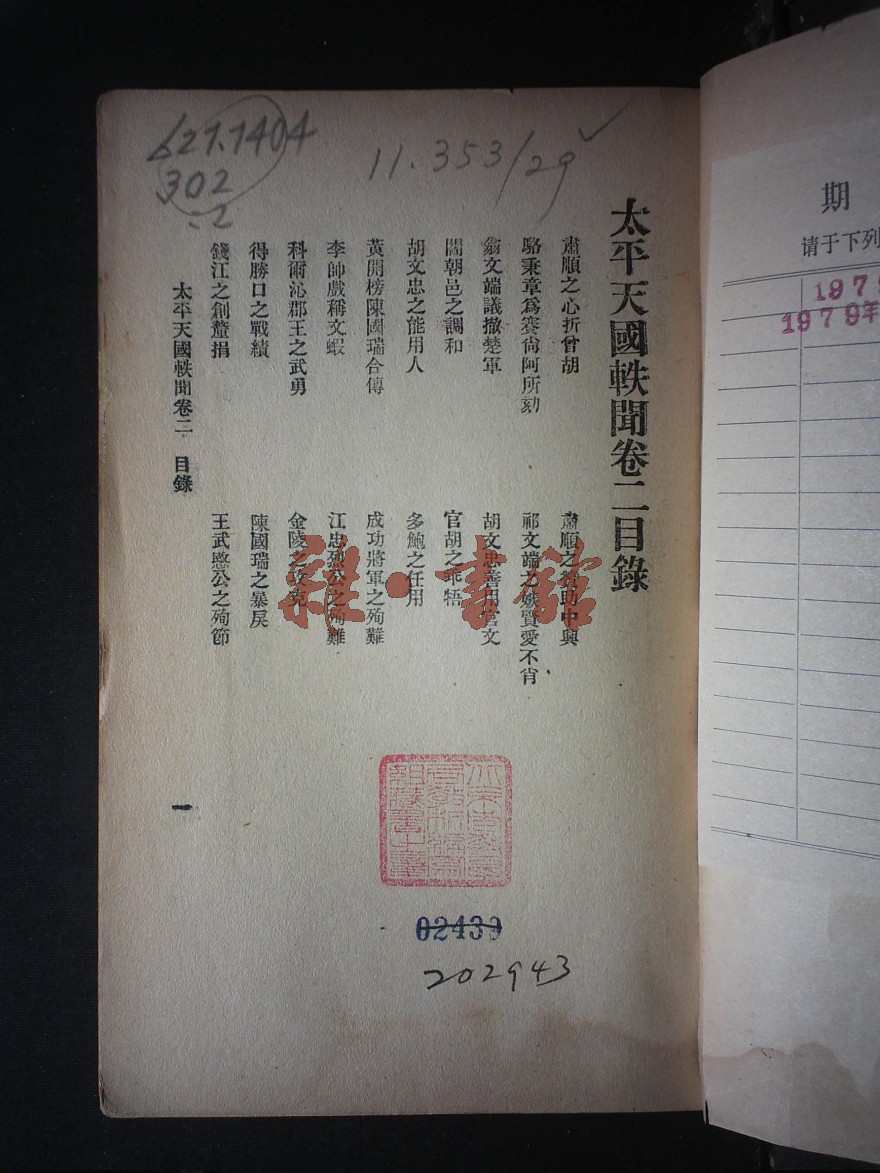 621.1404
302
:2
11.353/29
太平天國軼聞卷二目錄
肅順之心折曾胡
肅順之贊助中興
駱秉章爲賽尙阿所劾
祁文端之嫉賢愛不肖
翁文端議撤楚軍
胡文忠善用官文
閻朝邑之調和
官胡之乖牾
胡文忠之能用人
多鮑之任用
黃開榜陳國瑞合傳
成功將軍之殉難
李帥戲稱文蝦
江忠烈公之殉難
科爾沁郡王之武勇
金陵之攻克
得勝口之戰績
陳國瑞之暴戾
錢江之創釐捐
王武愍公之殉節
太平天國軼聞卷二 目錄
一
02439
202943
雜·書館
期
请于下列
197
1979年